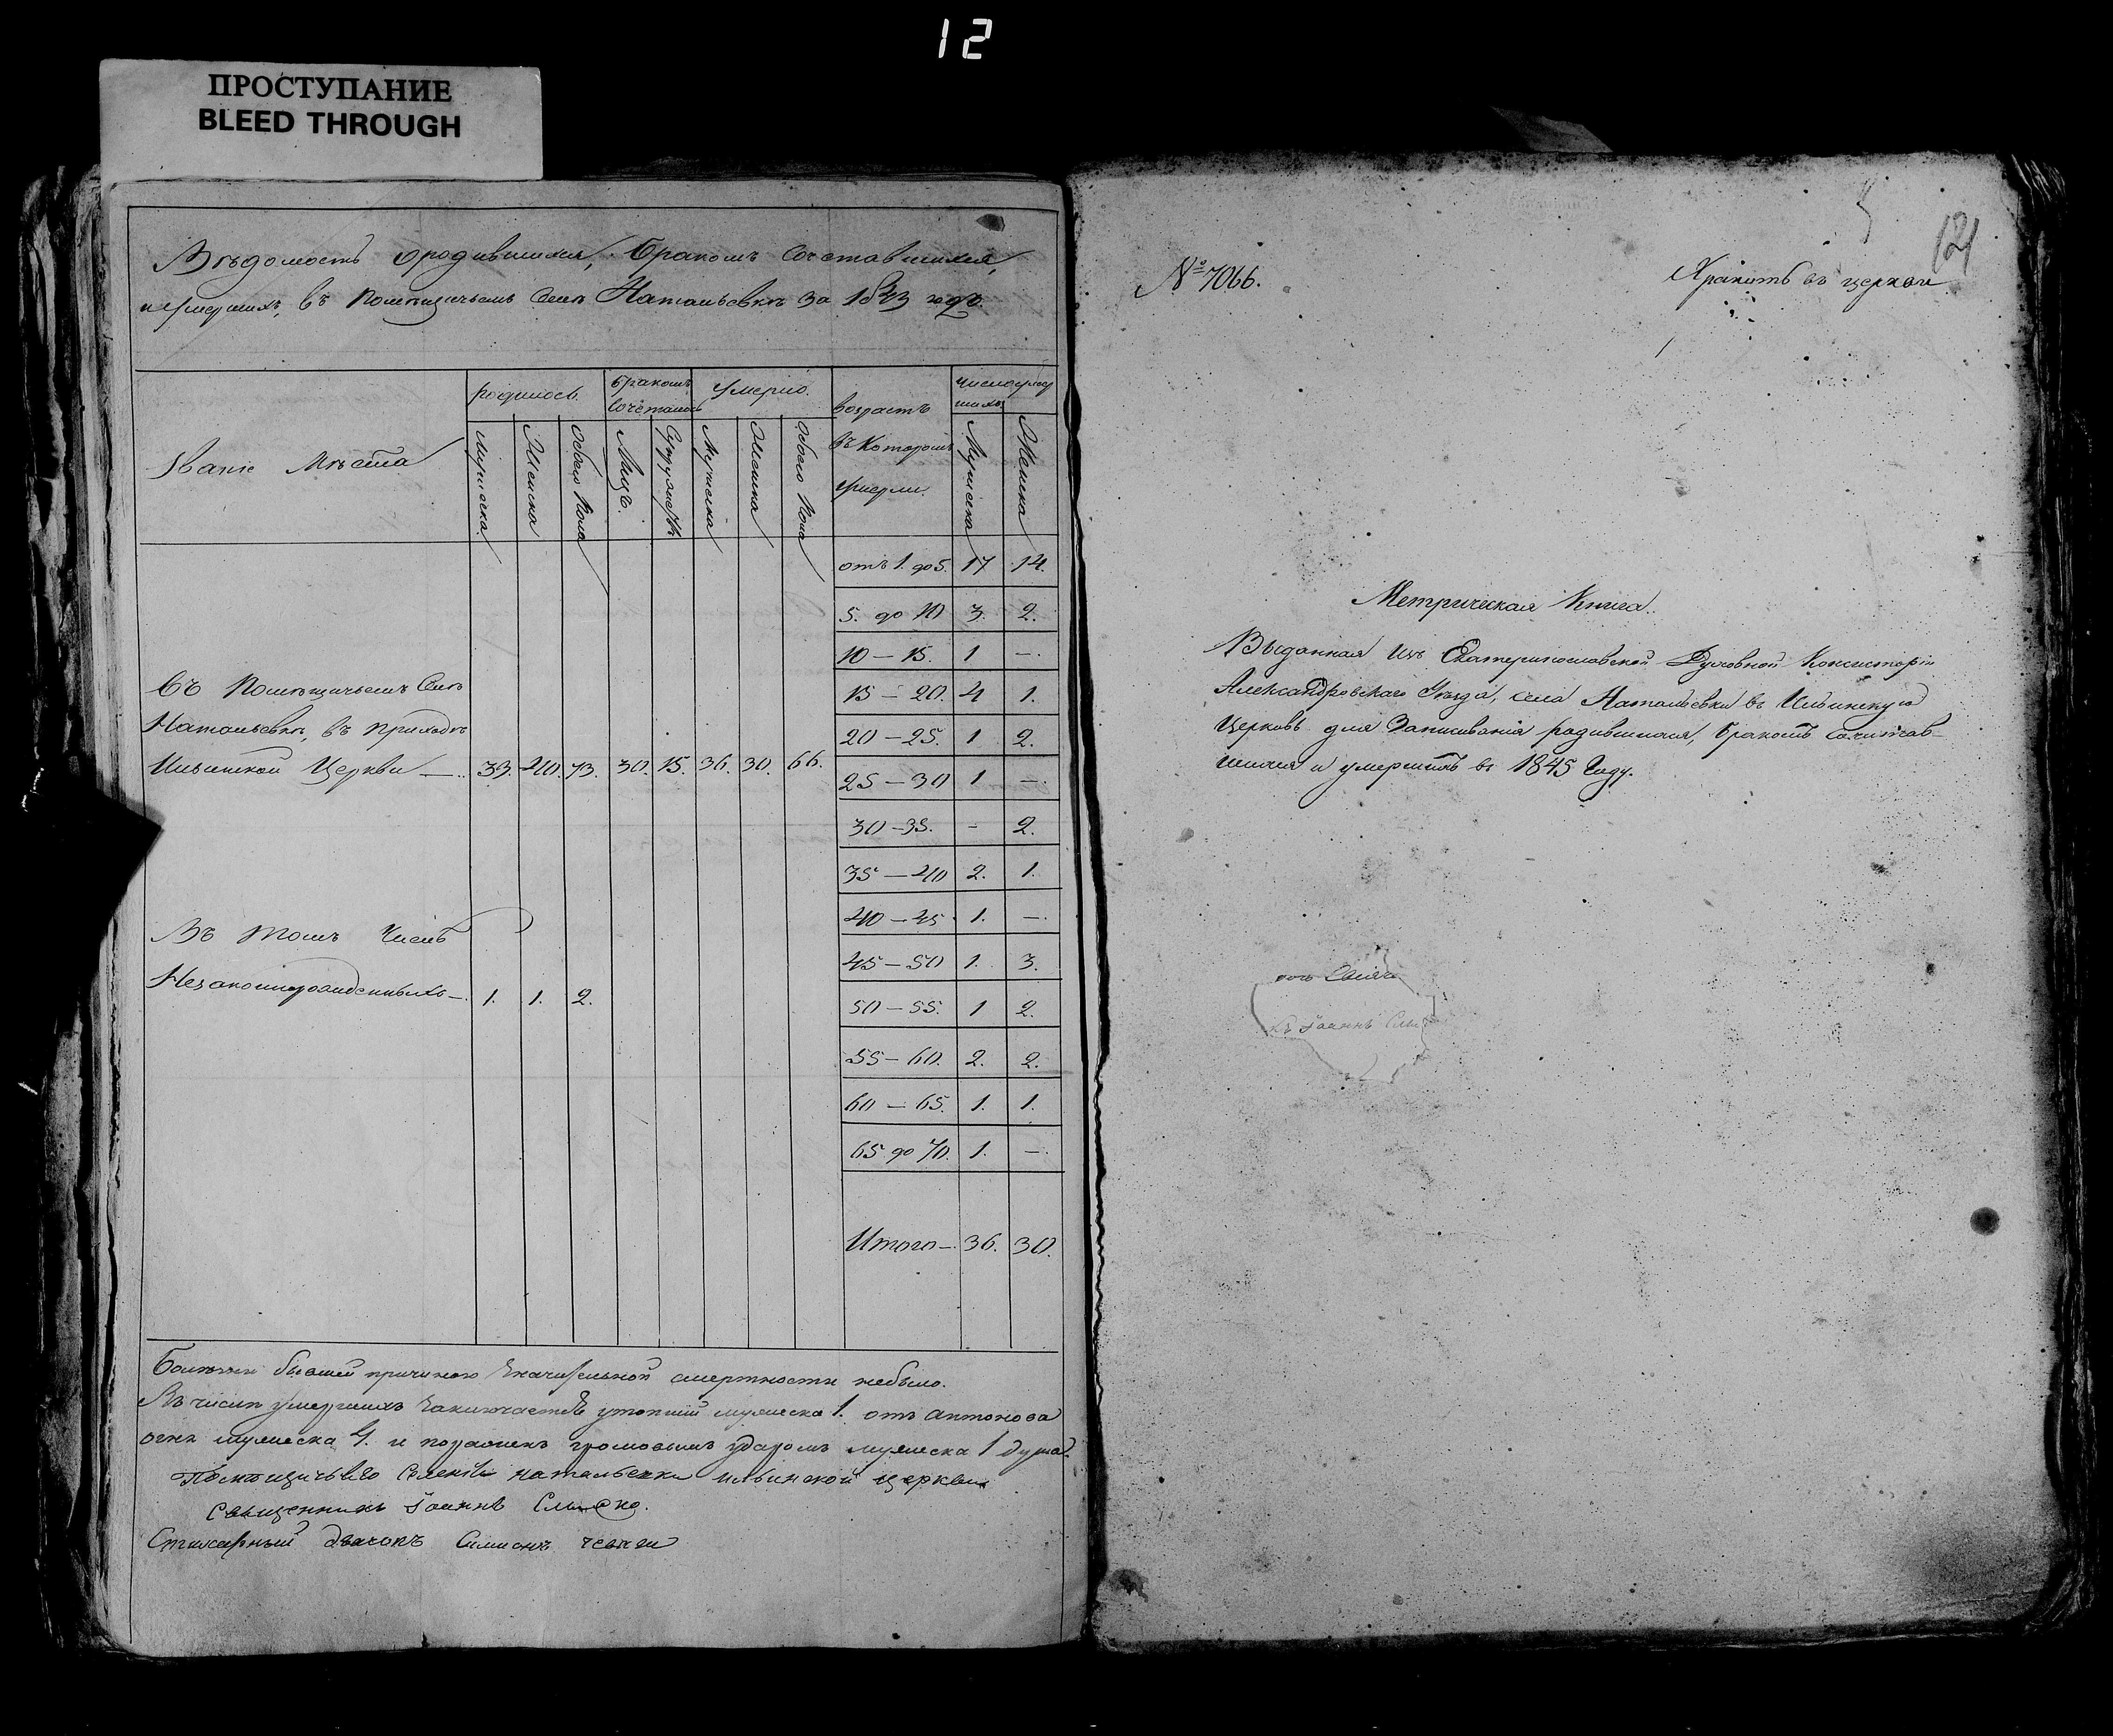 12
ПРОСТУПАНИЕ
BLEED THROUGH
Вѣдомость ородившихся, бракомъ сочетавшихся,
иумершихъ, въ Помѣщичьемъ Селѣ Натальевкѣ за 1843 годъ.
Званіе Мѣста
родилось.
бракомъ сочеталось
умерло.
возрастъ въ которомъ умерли.
число умер шихъ
Мужеска
Женска
Обоего Пола
Лицъ.
Супружествъ
Мужеска
Женска
Обоего Пола
Мужеска
Женска
отъ 1. до 5. 17 14.
5. до 10 3. 2.
10 — 15. 1 —.
15 — 20. 4 1.
20 — 25. 1 2.
25 — 30 1 —.
30 — 35. - 2.
35 — 40 2. 1.
40 — 45 1. —.
45 — 50 1. 3.
50 — 55. 1 2.
55 — 60. 2. 2.
60 — 65. 1. 1.
65. до 70. 1. —.
Итого — 36. 30.
Въ Помѣщичьемъ Селѣ
Натальевкѣ, въ приходѣ
Ильинской Церкви — 33. 40. 73. 30. 15. 36. 30. 66.
Въ томъ Числѣ
Незаконнорожденныхъ — 1. 1. 2.
Болѣзни бывшей причиною значительной смертности небыло.
Въ числѣ умершихъ заключается утопшій мужеска 1. отъ антонова
огня мужеска 4. и пораженъ громовымъ ударомъ мужеска 1 душа.
Помѣщичьяго Селенія натальевки ильинской церкви
Священникъ Іоаннъ
Стихарный дьячокъ Симионъ
№ 7066.
Хранить въ церкви
121
Метрическая Книга.
Выданная изъ Екатеринославской Духовной Консисторіи
Александровскаго Уѣзда, села Натальевки въ Ильинскую
Церковь для Записыванія родившихся, бракомъ сочетав-
шихся и умершихъ въ 1845 Году.
Іоаннъ